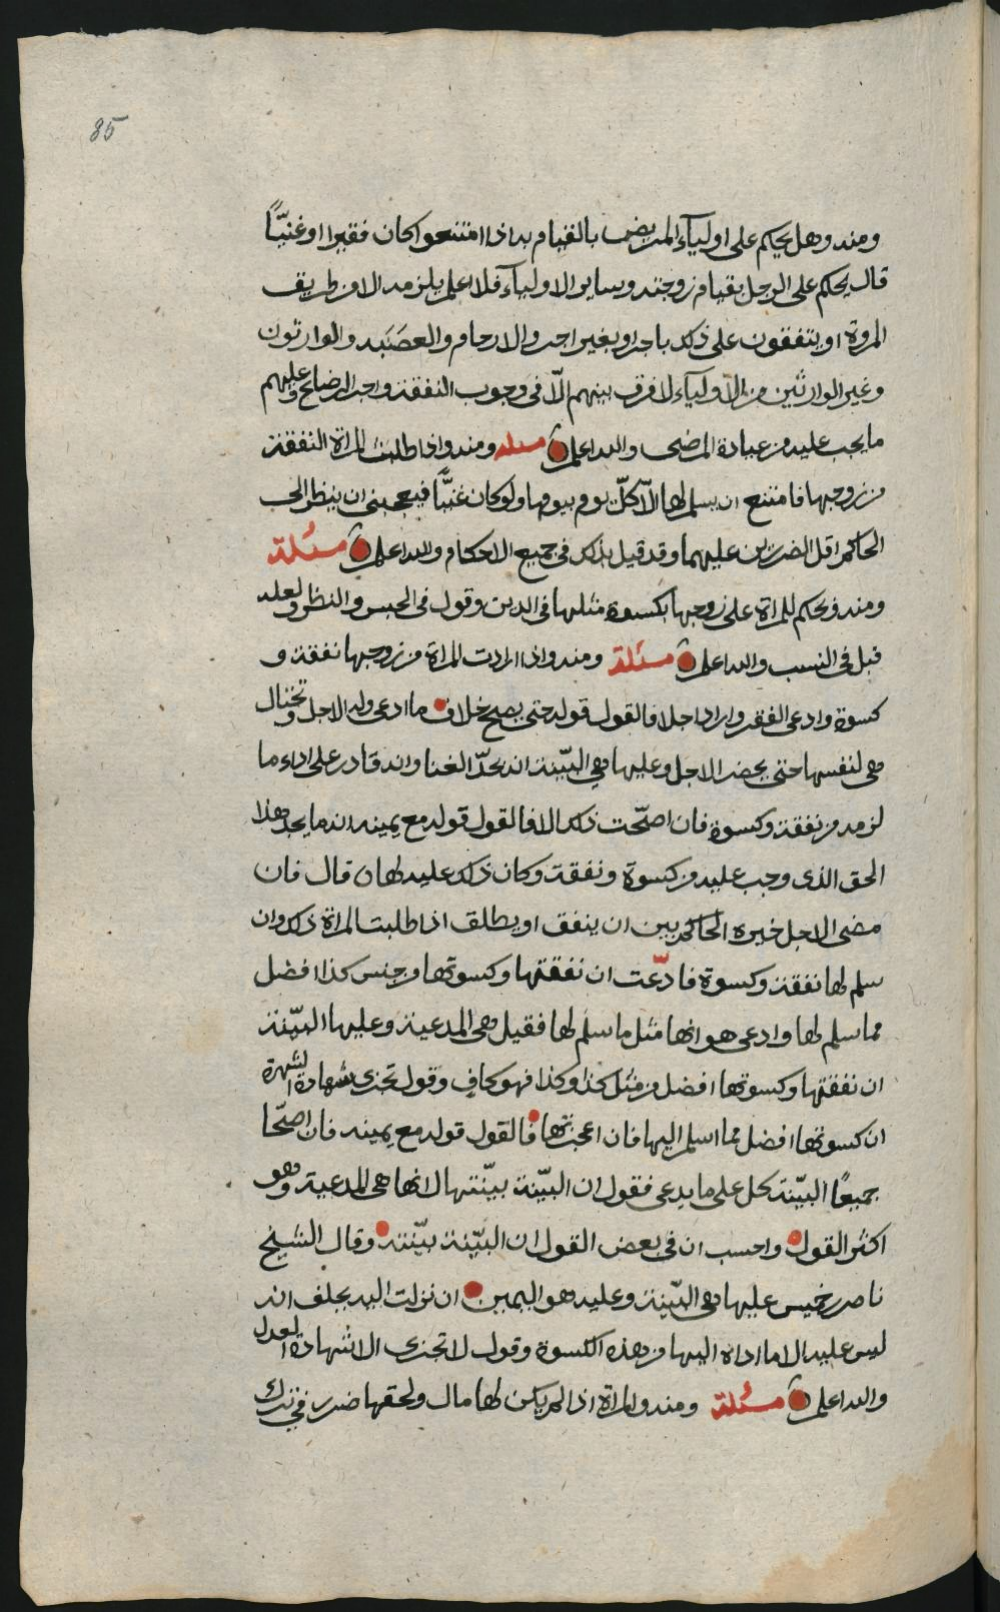 85
ومنه وهل يحكم على اوليآء المريض بالقيام به اذا امتنعوا كان فقيرا او غنيّاً
قال يحكم على الرجل بقيام زوجته وساير الاوليآء فلا اعلم يلزمه الا من طريق
المروة او يتفقون على ذلك باجر او بغير اجر والارحام والعصَبه والوارثون
وغير الوارثين من الاوليآء لا فرق بينهم الّا فى وجوب النفقة واجر الرضاع وعليهم
ما يجب عليه من عيادة المرضى والله اعلم مسئله ومنه واذا طلبت المراة النفقة
من زوجها فامتنع ان يسلم لها الّا كلّ يوم بيومها ولو كان غنيًّا فيعجبنى ان ينظر الى
الحاكم اقل الضررين عليهما وقد قيل بذلك فى جميع الاحكام والله اعلم مسئلة
ومنه ويحكم للمراة على زوجها بكسوة مثلها فى الدين وقول فى الحبس والنظر ولعله
قيل فى النسب والله اعلم مسئلة ومنه واذا ارادت المراة من زوجها نفقة و
كسوة وادعى الفقر واراد اجلا فالقول قوله حتى يصح خلاف ما ادعى وله الاجل وتحتال
هى لنفسها حتى يحضر الاجل وعليها هى البيّنة انه بحدّ الغنا وانه قادر على اداء ما
لزمه من نفقة وكسوة فان اصحّت ذلك والا فالقول قوله مع يمينه انه ما يجد هذا
الحق الذى وجب عليه من كسوة ونفقة وكان ذلك عليه لها ن قال فان
مضى الاجل خيره الحاكم بين ان ينفق او يطلق اذا طلبت المراة ذلك وان
سلم لها نفقة وكسوة فادّعت ان نفقتها وكسوتها من جنس كذا افضل
مما سلم لها وادعى هو انها مثل ما سلم لها فقيل هى المدعية وعليها البيّنة
ان نفقتها وكسوتها افضل من مثل كذا وكذا فهو كافٍ وقول تجزى شهادة الشهرة
ان كسوتها افضل مما اسلم اليها فان اعجزتها فالقول قوله مع يمينه فان اصحّا
جميعًا البيّنة كل على ما يدعى فقول ان البيّنة بيّنتها لانها هى المدعية وهو
اكثر القول واحسب ان فى بعض القول ان البيّنة بيّنته وقال الشيخ
ناصر بن خميس عليها هى البيّنة وعليه هو اليمين ان نزلت اليه يحلف انه
ليس عليه الا ما اداه اليها من هذه الكسوة وقول لا تجزى الا شهادة العدل
والله اعلم مسئلة ومنه والمراة اذا لم يكن لها مال ولحقها ضرر فى ترك